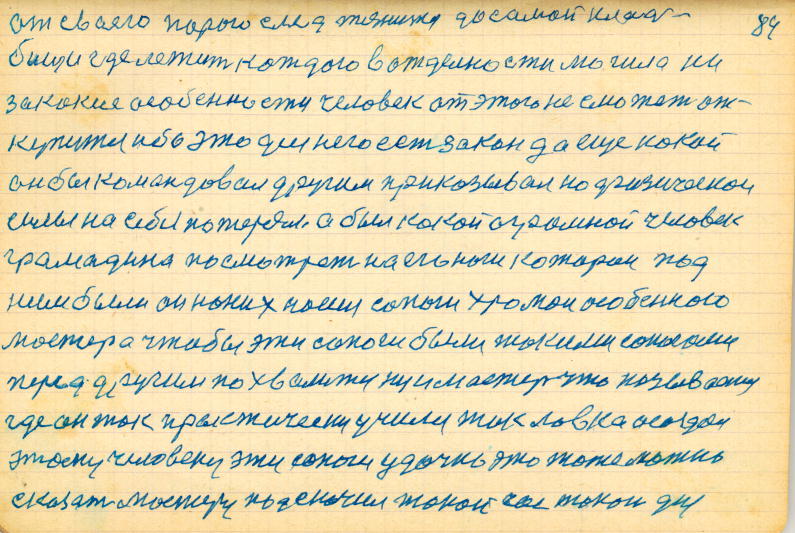 от своего порога след тянится до самой клад- 84
бищи где лежит каждого в отделности могила ни
за какие особенности человек от этого не сможет от-
купится ибо это для него ест закон да еще какой
он был командовал другим приказывал но физической
силы на себя потерял. а был какой огромной человек
грамадина посмотрет на его ноги которые под
ним были он на них носил сапоги хромои особенного
мастера чтобы эти сапоги были такими сапогами
перед другим похвалится мастер что называю
где он так практически учили так ловка создал
этому человеку эти сапоги удачно это тоже можно
сказат мастеру подскочил такой час такой дн